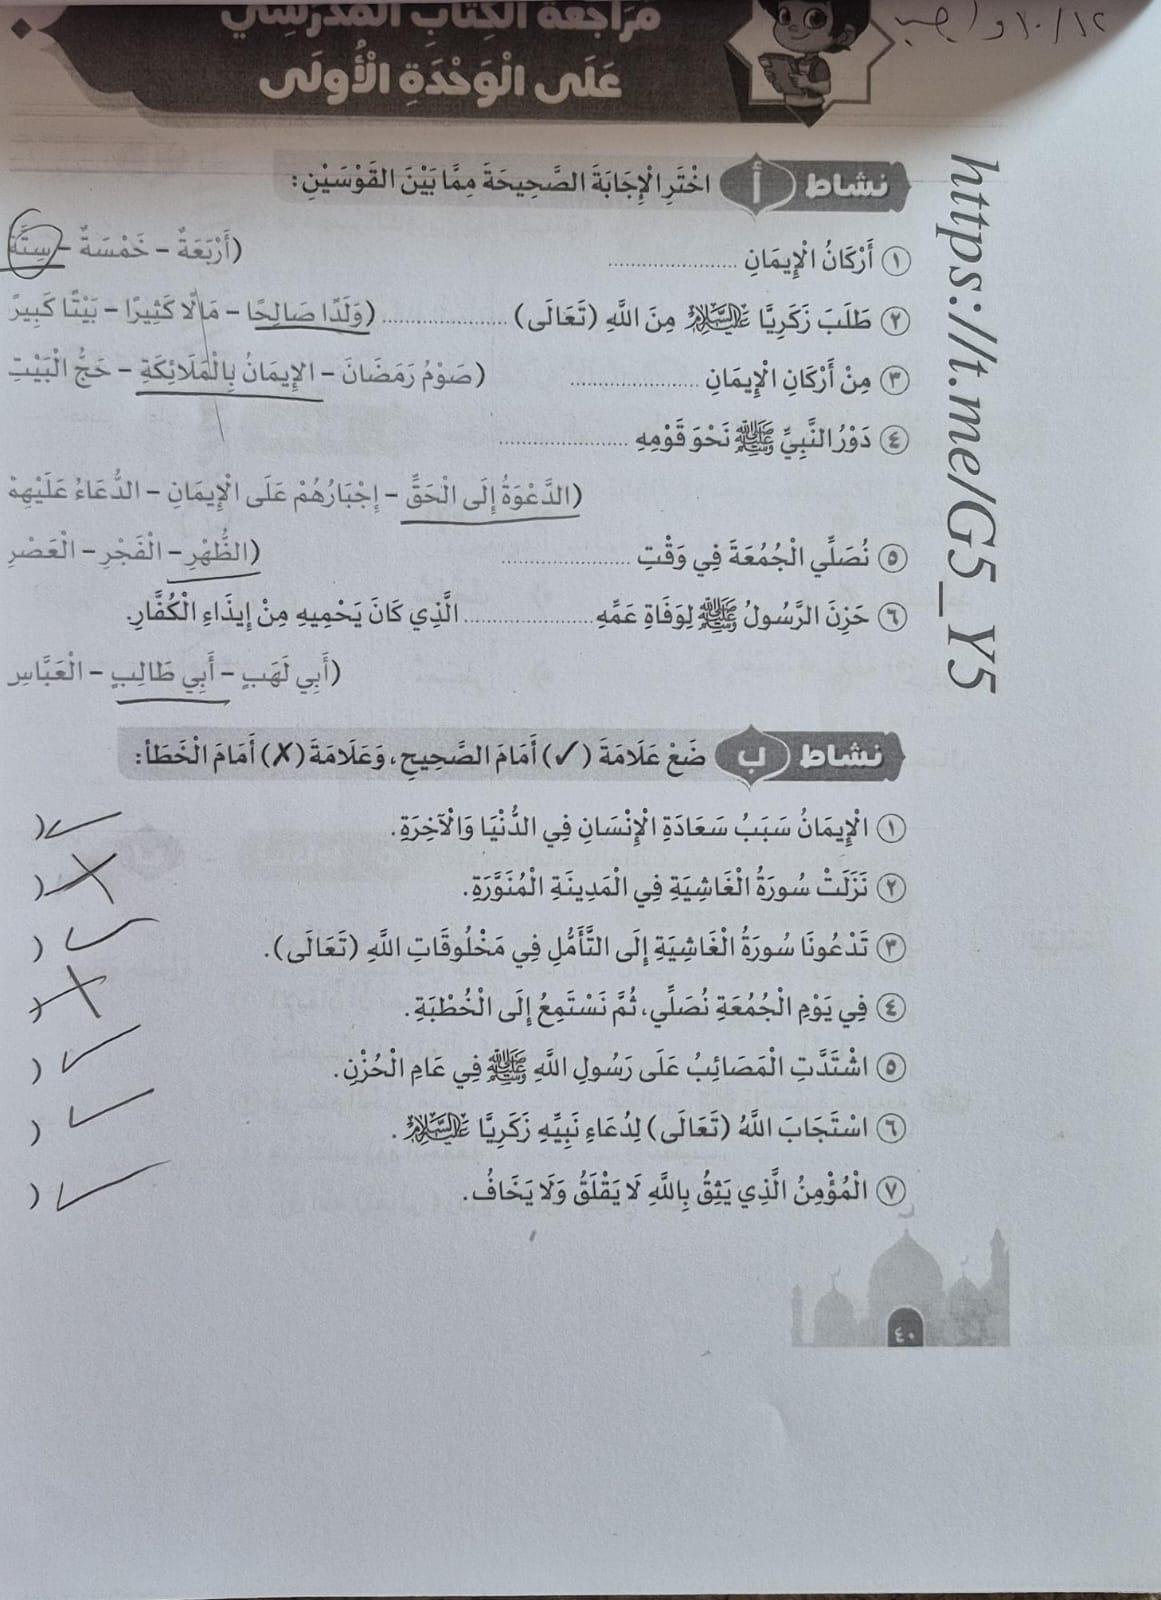 ١٠/١٢ واجب
مُرَاجَعَةُ الْكِتَابِ الْمَدْرَسِيِّ
عَلَى الْوَحْدَةِ الْأُولَى
https://t.me/G5_Y5
نشاط أ اخْتَرِ الْإِجَابَةَ الصَّحِيحَةَ مِمَّا بَيْنَ الْقَوْسَيْنِ:
١ أَرْكَانُ الْإِيمَانِ .................... (أَرْبَعَةٌ - خَمْسَةٌ - سِتَّةٌ
٢ طَلَبَ زَكَرِيَّا عَلَيْهِ السَّلَامُ مِنَ اللَّهِ (تَعَالَى) .................... (وَلَدًا صَالِحًا - مَالًا كَثِيرًا - بَيْتًا كَبِيرً
٣ مِنْ أَرْكَانِ الْإِيمَانِ .................... (صَوْمُ رَمَضَانَ - الْإِيمَانُ بِالْمَلَائِكَةِ - حَجُّ الْبَيْتِ
٤ دَوْرُ النَّبِيِّ ﷺ نَحْوَ قَوْمِهِ ....................
(الدَّعْوَةُ إِلَى الْحَقِّ - إِجْبَارُهُمْ عَلَى الْإِيمَانِ - الدُّعَاءُ عَلَيْهِمْ
٥ نُصَلِّي الْجُمُعَةَ فِي وَقْتِ .................... (الظُّهْرِ - الْفَجْرِ - الْعَصْرِ
٦ حَزِنَ الرَّسُولُ ﷺ لِوَفَاةِ عَمِّهِ .................... الَّذِي كَانَ يَحْمِيهِ مِنْ إِيذَاءِ الْكُفَّارِ.
(أَبِي لَهَبٍ - أَبِي طَالِبٍ - الْعَبَّاسِ
نشاط ب ضَعْ عَلَامَةَ (✓) أَمَامَ الصَّحِيحِ، وَعَلَامَةَ (✗) أَمَامَ الْخَطَأ:
١ الْإِيمَانُ سَبَبُ سَعَادَةِ الْإِنْسَانِ فِي الدُّنْيَا وَالْآخِرَةِ. ( ✓
٢ نَزَلَتْ سُورَةُ الْغَاشِيَةِ فِي الْمَدِينَةِ الْمُنَوَّرَةِ. ( ✗
٣ تَدْعُونَا سُورَةُ الْغَاشِيَةِ إِلَى التَّأَمُّلِ فِي مَخْلُوقَاتِ اللَّهِ (تَعَالَى). ( ✓
٤ فِي يَوْمِ الْجُمُعَةِ نُصَلِّي، ثُمَّ نَسْتَمِعُ إِلَى الْخُطْبَةِ. ( ✗
٥ اشْتَدَّتِ الْمَصَائِبُ عَلَى رَسُولِ اللَّهِ ﷺ فِي عَامِ الْحُزْنِ. ( ✓
٦ اسْتَجَابَ اللَّهُ (تَعَالَى) لِدُعَاءِ نَبِيِّهِ زَكَرِيَّا عَلَيْهِ السَّلَامُ. ( ✓
٧ الْمُؤْمِنُ الَّذِي يَثِقُ بِاللَّهِ لَا يَقْلَقُ وَلَا يَخَافُ. ( ✓
٤٠